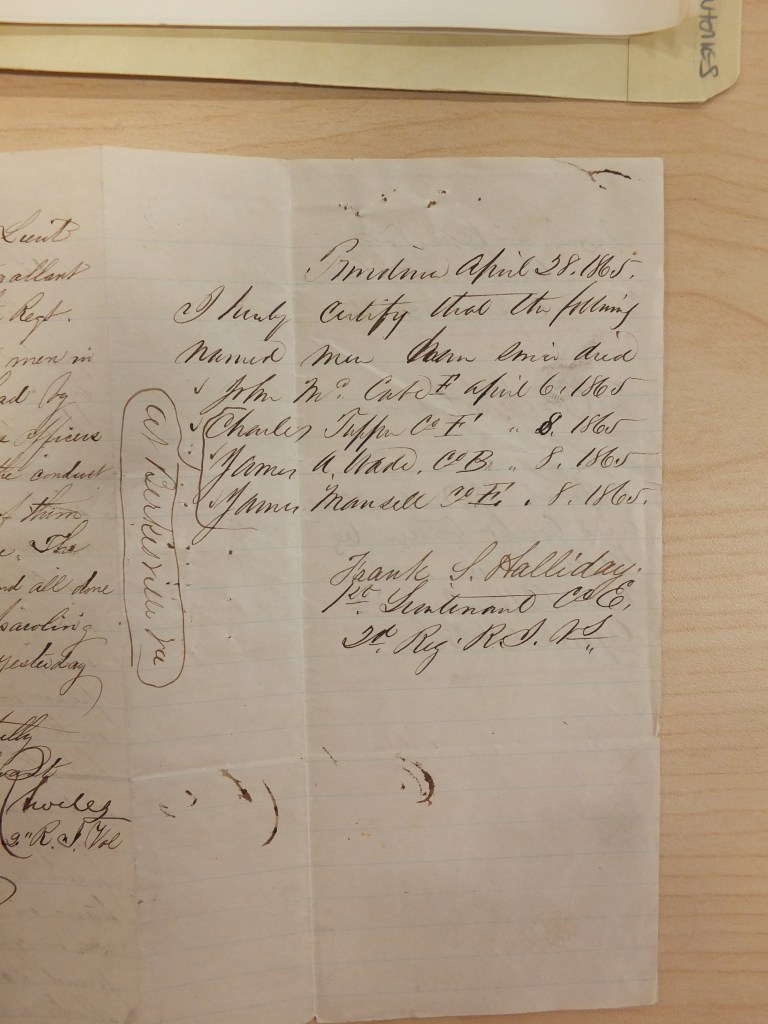 Lieut
gallant
Regt.
men in
by
officers
the conduct
of them
The
and all done
yesterday
2" R. I. Vol
April 28. 1865.
I hereby certify that the following
named men have since died
John Mc Cabe E April 6, 1865
Charles Tupper Co E " 8. 1865
James A. Wade. Co B. " 8. 1865
James Mansell Co E. " 8. 1865.
at Berkisville Va
Frank S. Halliday.
1st. Lieutenant Co E.
2d. Reg. R. I. Vs